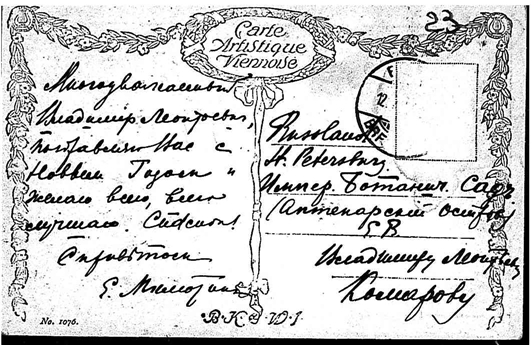 23
Carte
Artistique
Viennoise
Многоуважаемый
Владимир Леонтьевич,
поздравляю Вас с
Новым Годом и
желаю всего, всего
лучшаго.
Russland
St. Petersburg
Импер. Ботанич. Садъ
Аптекарский Остров
Владимиру Леонтьев.
Комарову
No. 1076.
B.K.W.I.